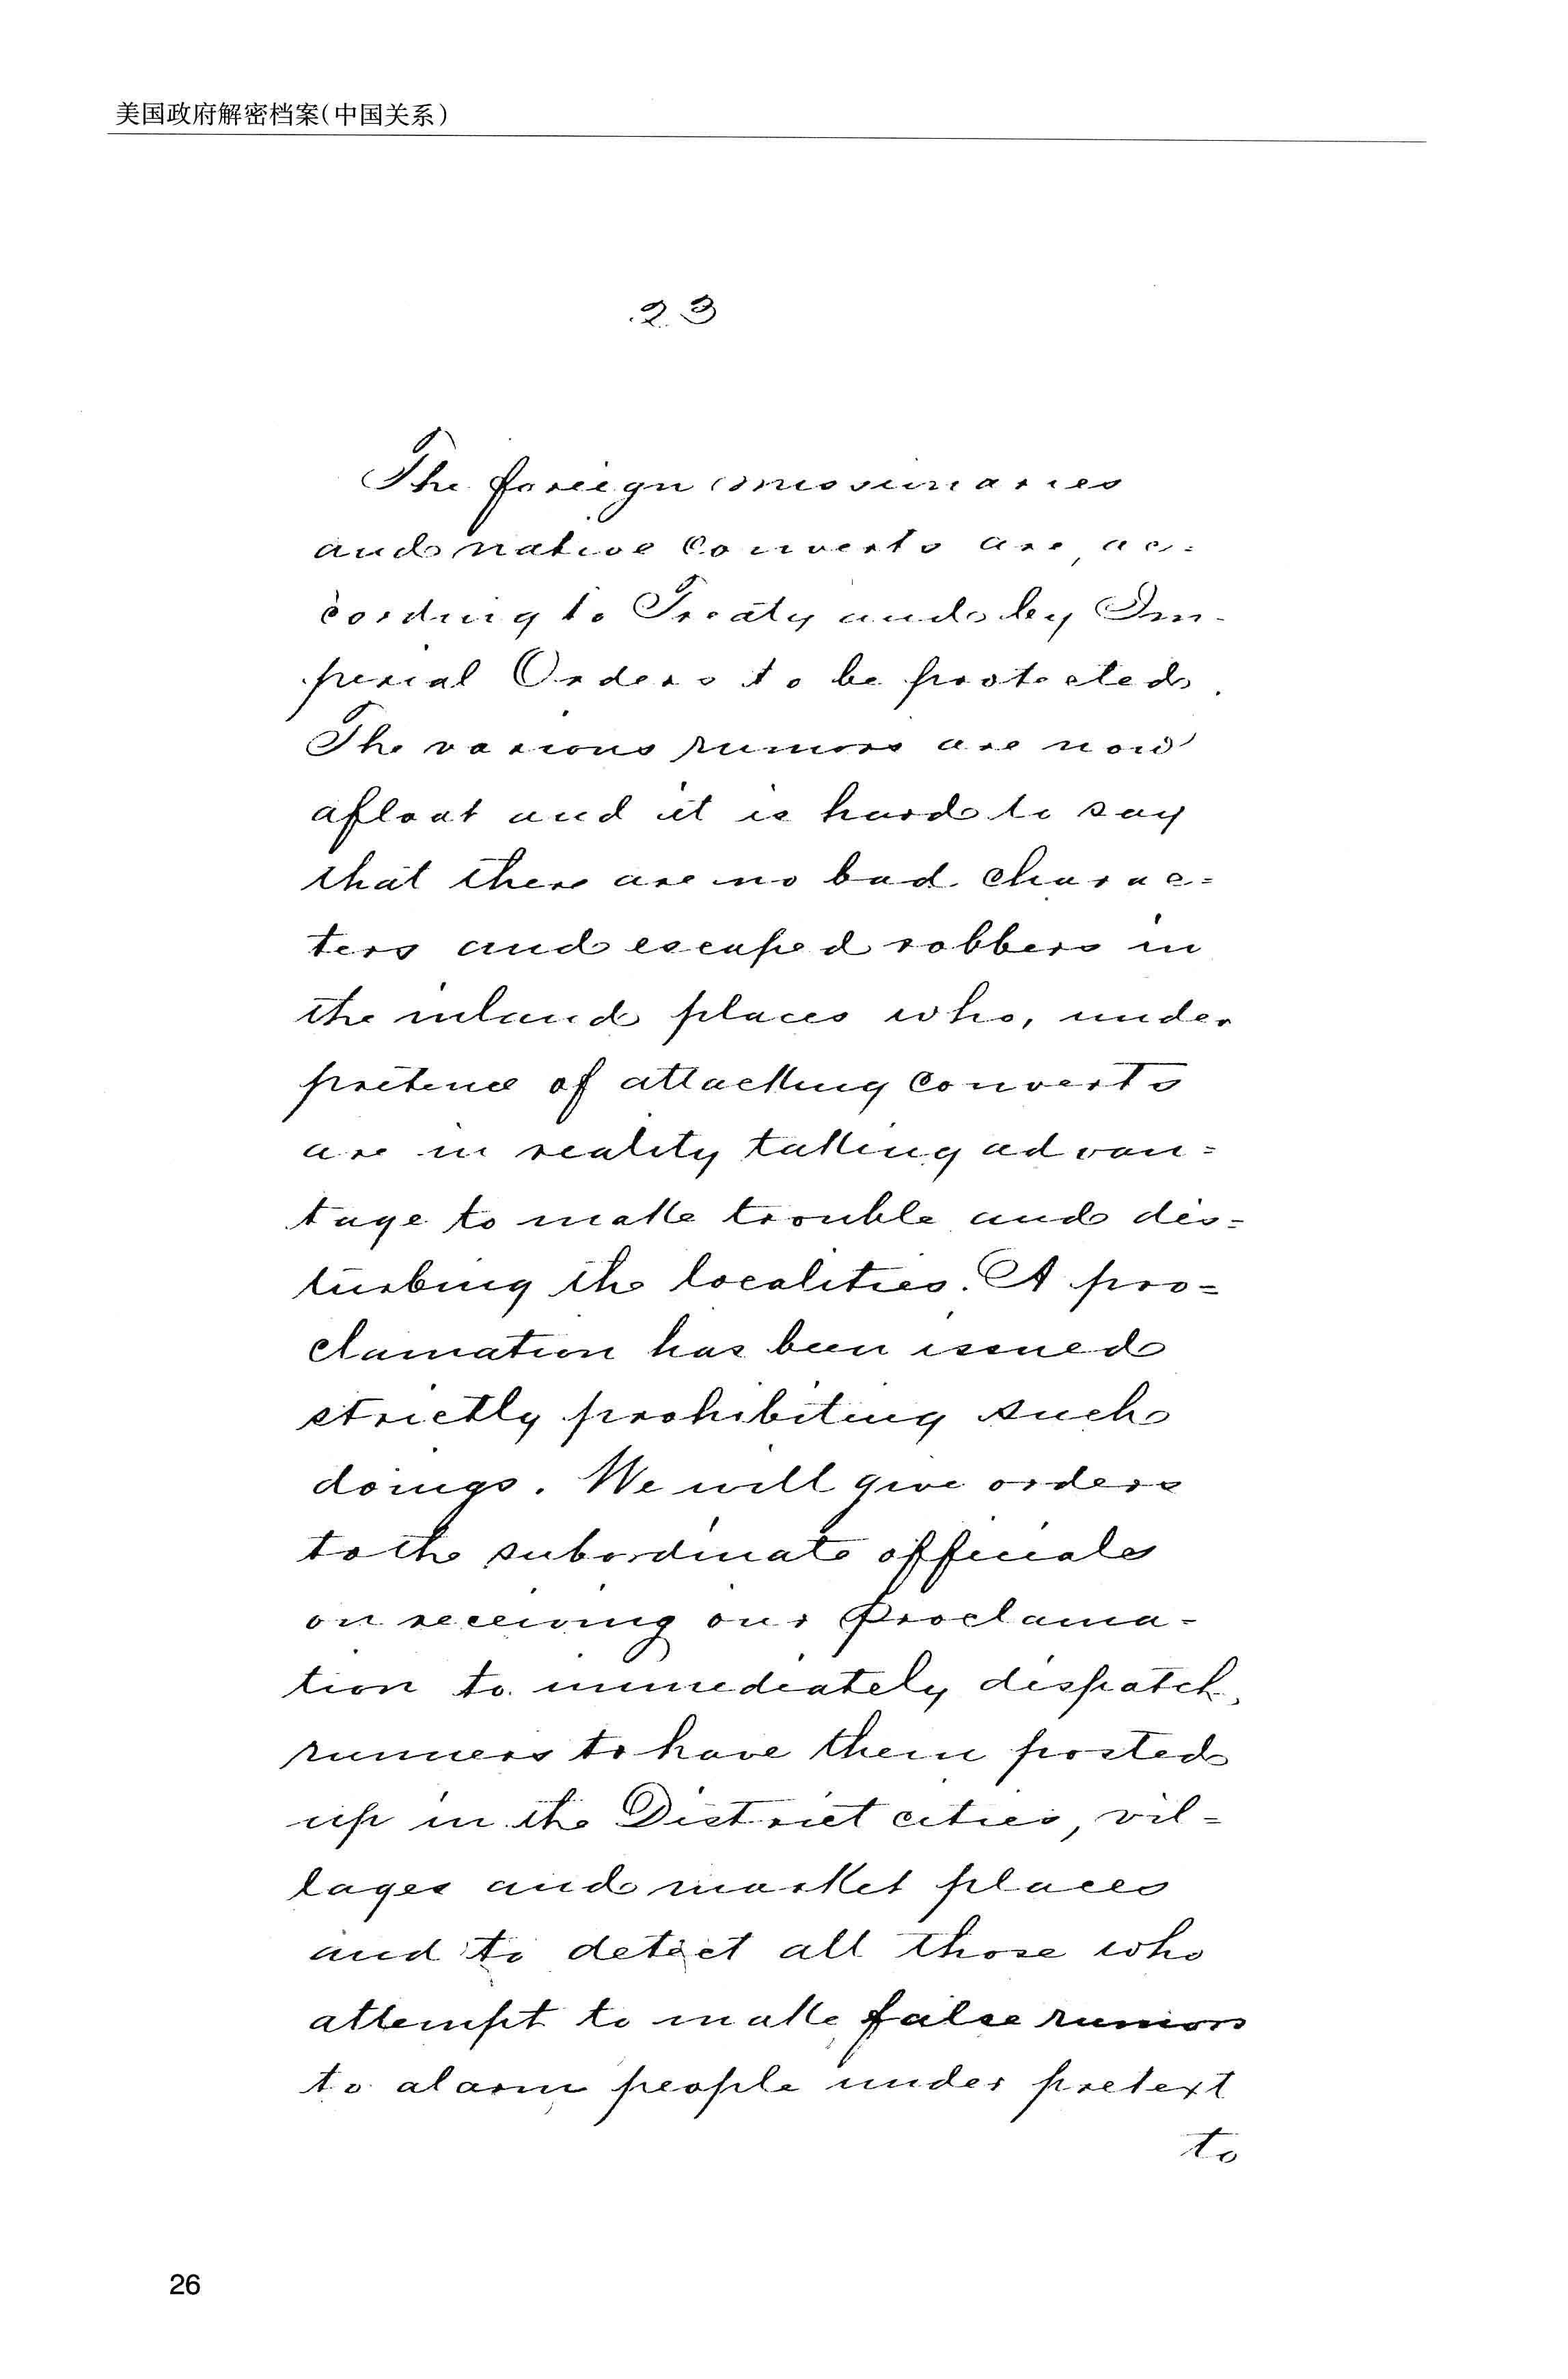 美国政府解密档案(中国关系)
23
The foreign missionaries
and native Converts are, ac=
cording to Treaty and by Im-
perial Orders to be protected.
The various rumors are now
afloat and it is hard to say
that there are no bad charac=
ters and escaped robbers in
the inland places who, under
pretence of attacking Converts
are in reality taking advan=
tage to make trouble and dis=
turbing the localities. A pro=
clamation has been issued
strictly prohibiting such
doings. We will give orders
to the subordinate officials
on receiving our Proclama-
tion to immediately dispatch
runners to have them posted
up in the District cities, vil=
lages and market places
and to detect all those who
attempt to make false rumors
to alarm people under pretext
to
26